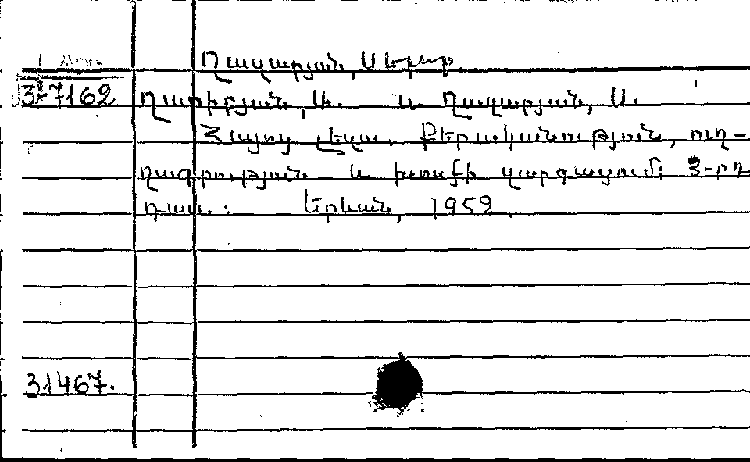 Ղազարյան, Սերոբ
37162 Ղարիբյան, Ա. և Ղազարյան, Ս.
Հայոց լեզու. Քերականություն, ուղ-
ղագրություն և խոսքի զարգացում: 3-րդ
դաս.: Երևան, 1959.
31467.